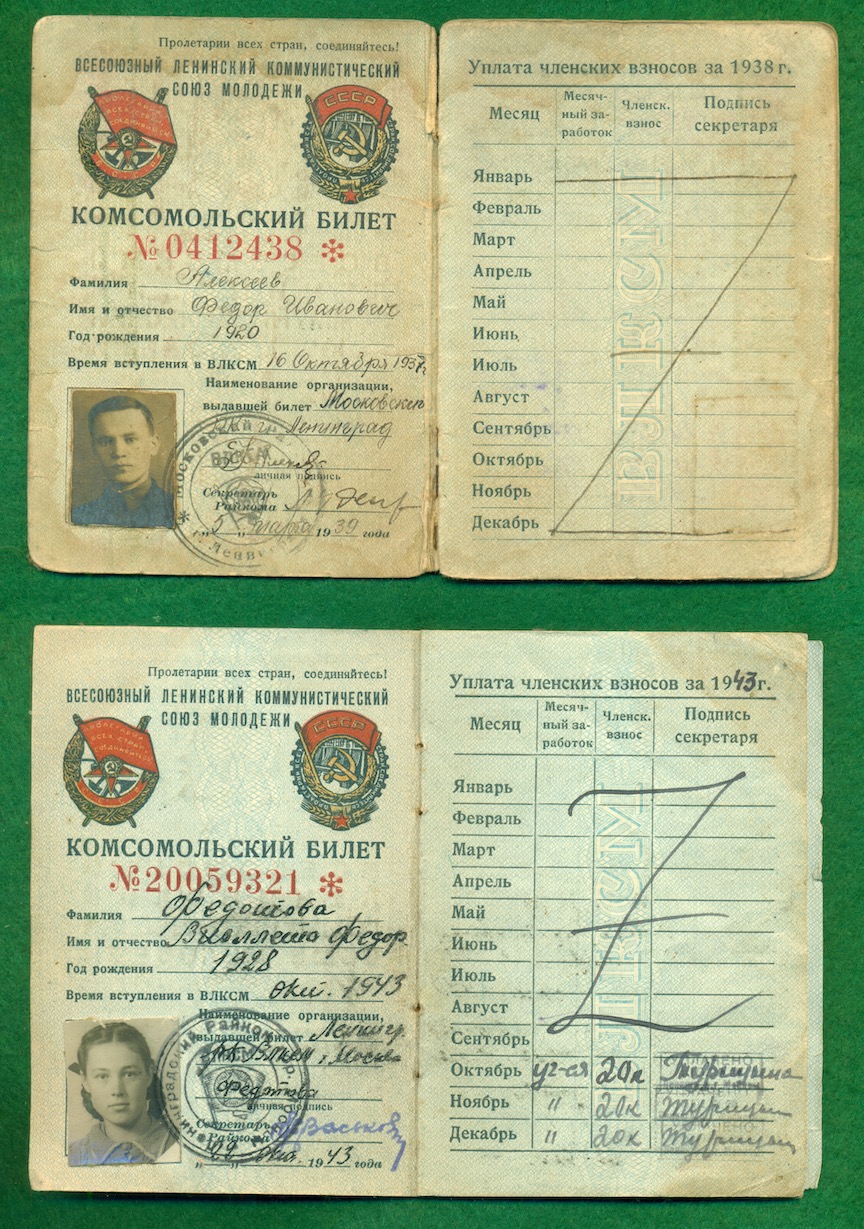 Пролетарии всех стран, соединяйтесь!
ВСЕСОЮЗНЫЙ ЛЕНИНСКИЙ КОММУНИСТИЧЕСКИЙ
СОЮЗ МОЛОДЕЖИ
СССР
КОМСОМОЛЬСКИЙ БИЛЕТ
№ 0412438 *
Фамилия Алексеев
Имя и отчество Федор Иванович
Год рождения 1920
Время вступления в ВЛКСМ 16 Октября 1937г
Наименование организации,
выдавшей билет Московский
РК г. Ленинград
личная подпись
Секретарь
Райкома
„5" марта 1939 года
Уплата членских взносов за 1938 г.
Месяц Месяч-ный за-работок Членск. взнос Подпись секретаря
Январь
Февраль
Март
Апрель
Май
Июнь
Июль
Август
Сентябрь
Октябрь
Ноябрь
Декабрь
ВЛКСМ
Пролетарии всех стран, соединяйтесь!
ВСЕСОЮЗНЫЙ ЛЕНИНСКИЙ КОММУНИСТИЧЕСКИЙ
СОЮЗ МОЛОДЕЖИ
СССР
КОМСОМОЛЬСКИЙ БИЛЕТ
№ 20059321 *
Фамилия Федотова
Имя и отчество Виоллета Федор.
Год рождения 1928
Время вступления в ВЛКСМ окт. 1943
Наименование организации,
выдавшей билет Ленингр.
РК ВЛКСМ г. Москва
Федотова
личная подпись
Секретарь
Райкома
„22" окт. 1943 года
Уплата членских взносов за 1943 г.
Месяц Месяч-ный за-работок Членск. взнос Подпись секретаря
Январь
Февраль
Март
Апрель
Май
Июнь
Июль
Август
Сентябрь
Октябрь уч-ся 20к
Ноябрь " 20к
Декабрь " 20к
ВЛКСМ